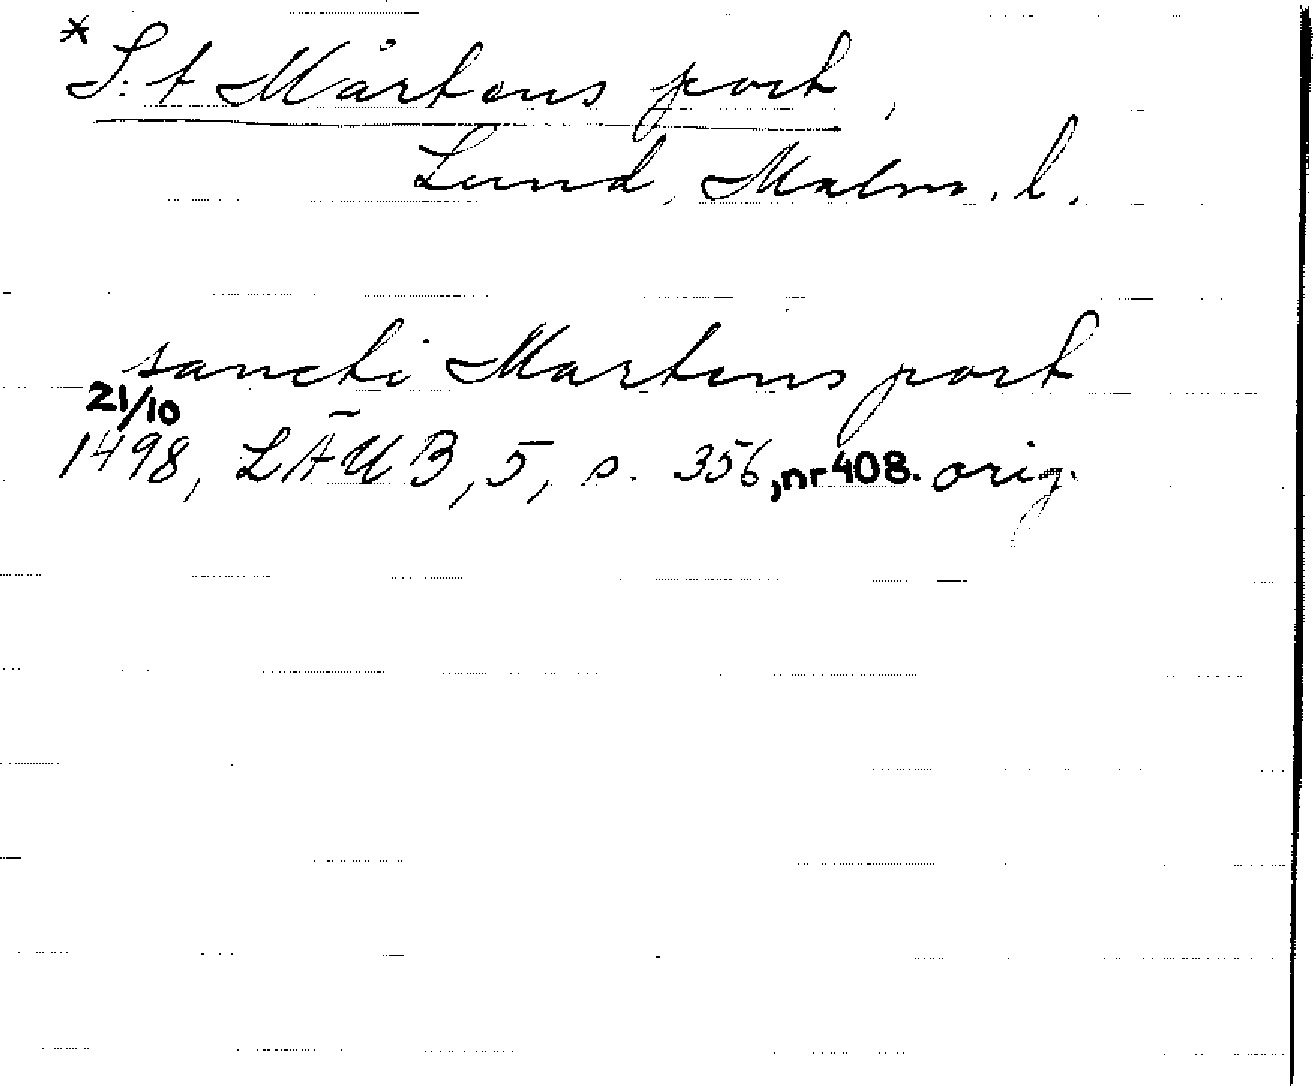 * S:t Mårtens port,
Lund, Malm. l.
sancti Martens port
21/10
1498, LÄUB, 5, s. 356, nr 408. orig.